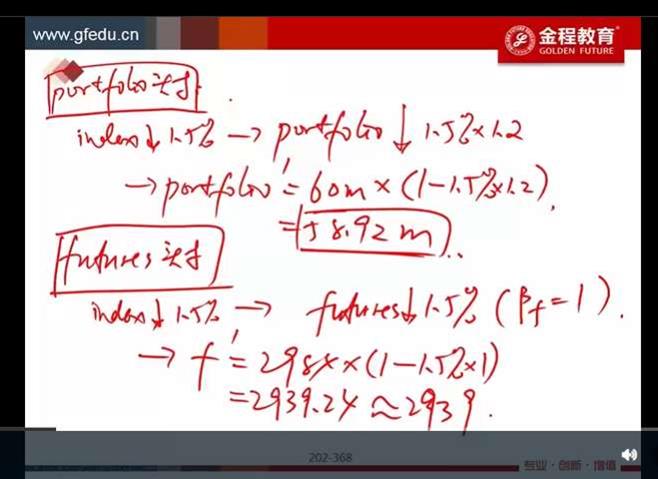 www.gfedu.cn
金程教育
GOLDEN FUTURE
portfolio头寸
index↓1.5% → portfolio↓1.5%×1.2
→ portfolio' = 60m×(1-1.5%×1.2)
= 58.92m
futures头寸
index↓1.5% → futures↓1.5% (βf=1).
→ f' = 2984×(1-1.5%×1)
=2939.24≈2939.
202-368
专业·创新·增值